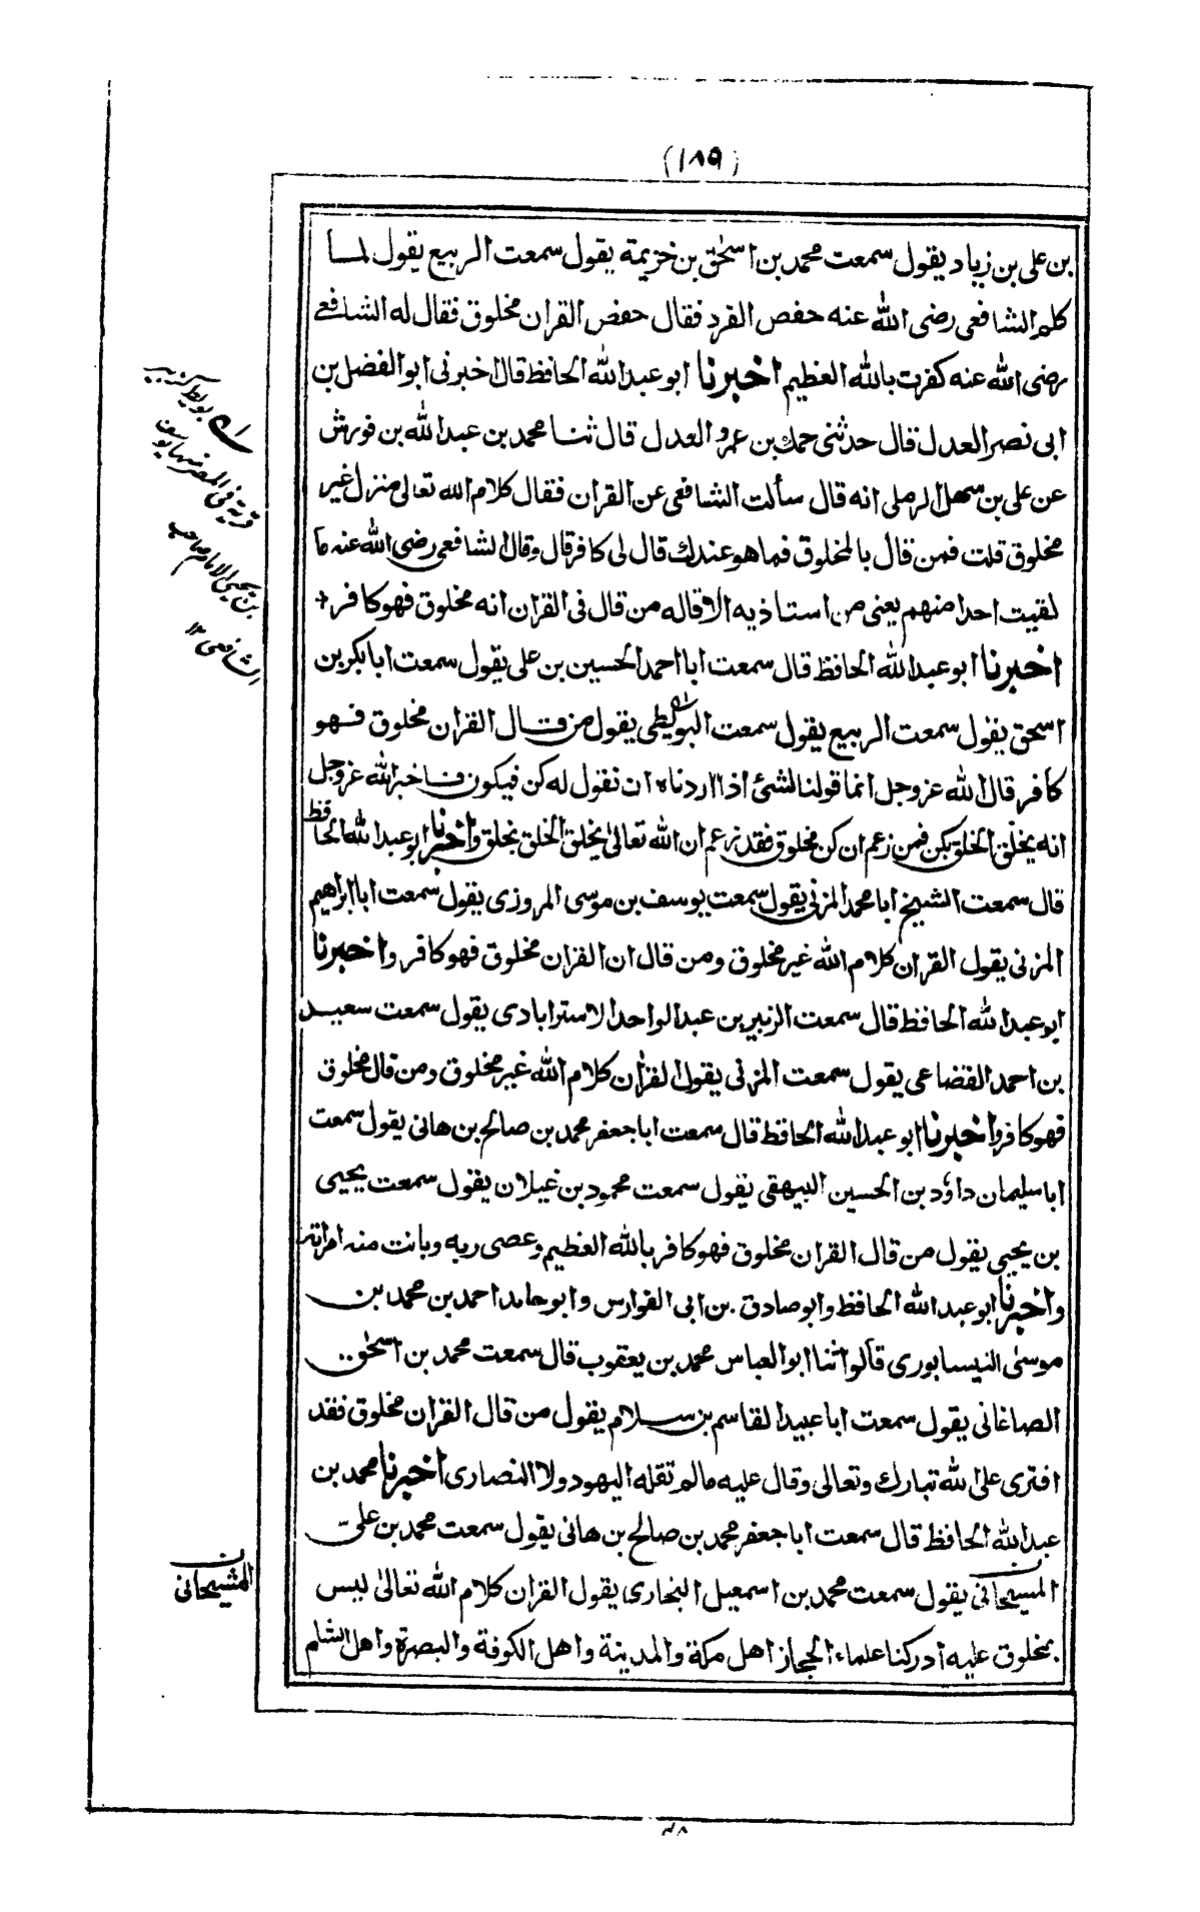 (١٨٩)
بن على بن زياد يقول سمعت محمد بن اسحٰق بن خزيمة يقول سمعت الربيع يقول لما
كلم الشافعى رضى الله عنه حفص الفرد فقال حفص القران مخلوق فقال له الشافعى
رضى الله عنه كفرت بالله العظيم اخبرنا ابو عبد الله الحافظ قال اخبرنى ابو الفضل بن
ابى نصر العدل قال حدثنى حمك بن عمرو العدل قال ثنا محمد بن عبد الله بن فورش
عن على بن سهل الرملى انه قال سألت الشافعى عن القران فقال كلام الله تعالى منزل غير
مخلوق قلت فمن قال بالمخلوق فما هو عندك قال لى كافر قال وقال الشافعى رضى الله عنه ما
لقيت احدا منهم يعنى من استاذيه الا قاله من قال فى القران انه مخلوق فهو كافر +
اخبرنا ابو عبد الله الحافظ قال سمعت ابا احمد الحسين بن على يقول سمعت ابا بكر بن
اسحق يقول سمعت الربيع يقول سمعت البويطى يقول من قال القران مخلوق فهو
كافر قال الله عز وجل انما قولنا لشئ اذا اردناه ان نقول له كن فيكون فاخبر الله عز وجل
انه يخلق الخلق بكن فمن زعم ان كن مخلوق فقد زعم ان الله تعالى يخلق الخلق بخلق واخبرنا ابو عبد الله الحافظ
قال سمعت الشيخ ابا محمد المزنى يقول سمعت يوسف بن موسى المروزى يقول سمعت ابا ابراهيم
المزنى يقول القران كلام الله غير مخلوق ومن قال ان القران مخلوق فهو كافر واخبرنا
ابو عبد الله الحافظ قال سمعت الزبير بن عبد الواحد الاسترابادى يقول سمعت سعيد
بن احمد القضاعى يقول سمعت المزنى يقول القران كلام الله غير مخلوق ومن قال مخلوق
فهو كافر واخبرنا ابو عبد الله الحافظ قال سمعت ابا جعفر محمد بن صالح بن هانى يقول سمعت
ابا سليمان داؤد بن الحسين البيهقى يقول سمعت محمود بن غيلان يقول سمعت يحيى
بن يحيى يقول من قال القران مخلوق فهو كافر بالله العظيم وعصى ربه وبانت منه امراته
واخبرنا ابو عبد الله الحافظ وابو صادق بن ابى الفوارس وابو حامد احمد بن محمد بن
موسىٰ النيسابورى قالوا ثنا ابو العباس محمد بن يعقوب قال سمعت محمد بن اسحٰق
الصاغانى يقول سمعت ابا عبيد القاسم بن سلام يقول من قال القران مخلوق فقد
افترى على الله تبارك وتعالى وقال عليه ما لم تقله اليهود ولا النصارى اخبرنا محمد بن
عبد الله الحافظ قال سمعت ابا جعفر محمد بن صالح بن هانى يقول سمعت محمد بن على
المسيحانى يقول سمعت محمد بن اسمعيل البخارى يقول القران كلام الله تعالىٰ ليس
بمخلوق عليه ادركنا علماء الحجاز اهل مكة والمدينة واهل الكوفة والبصرة واهل الشام
بويط كزبير
قرية فى المصر منها يوسف
بن يحيى الامام صاحب
الشافعى ١٢
ن
المشيحانى